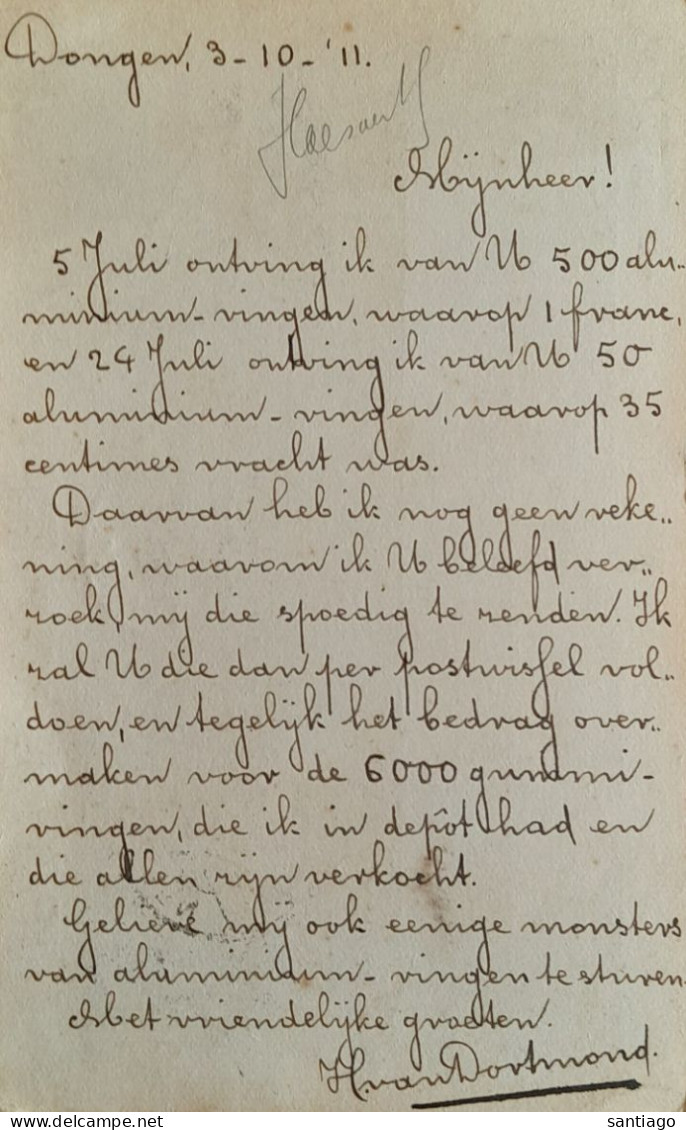 Dongen, 3-10-'11.
Mijnheer!
5 Juli ontving ik van U 500 alu..
minium-ringen, waarop 1 franc,
en 24 Juli ontving ik van U 50
aluminium-ringen, waarop 35
centimes vracht was.
Daarvan heb ik nog geen reke..
ning, waarom ik U beleefd ver..
zoek, mij die spoedig te zenden. Ik
zal U die dan per postwissel vol..
doen, en tegelijk het bedrag over..
maken voor de 6000 gummi-
ringen, die ik in depôt had en
die allen zijn verkocht.
Gelieve mij ook eenige monsters
van aluminium-ringen te sturen.
Met vriendelijke groeten.
H. van Dortmond.
santiago